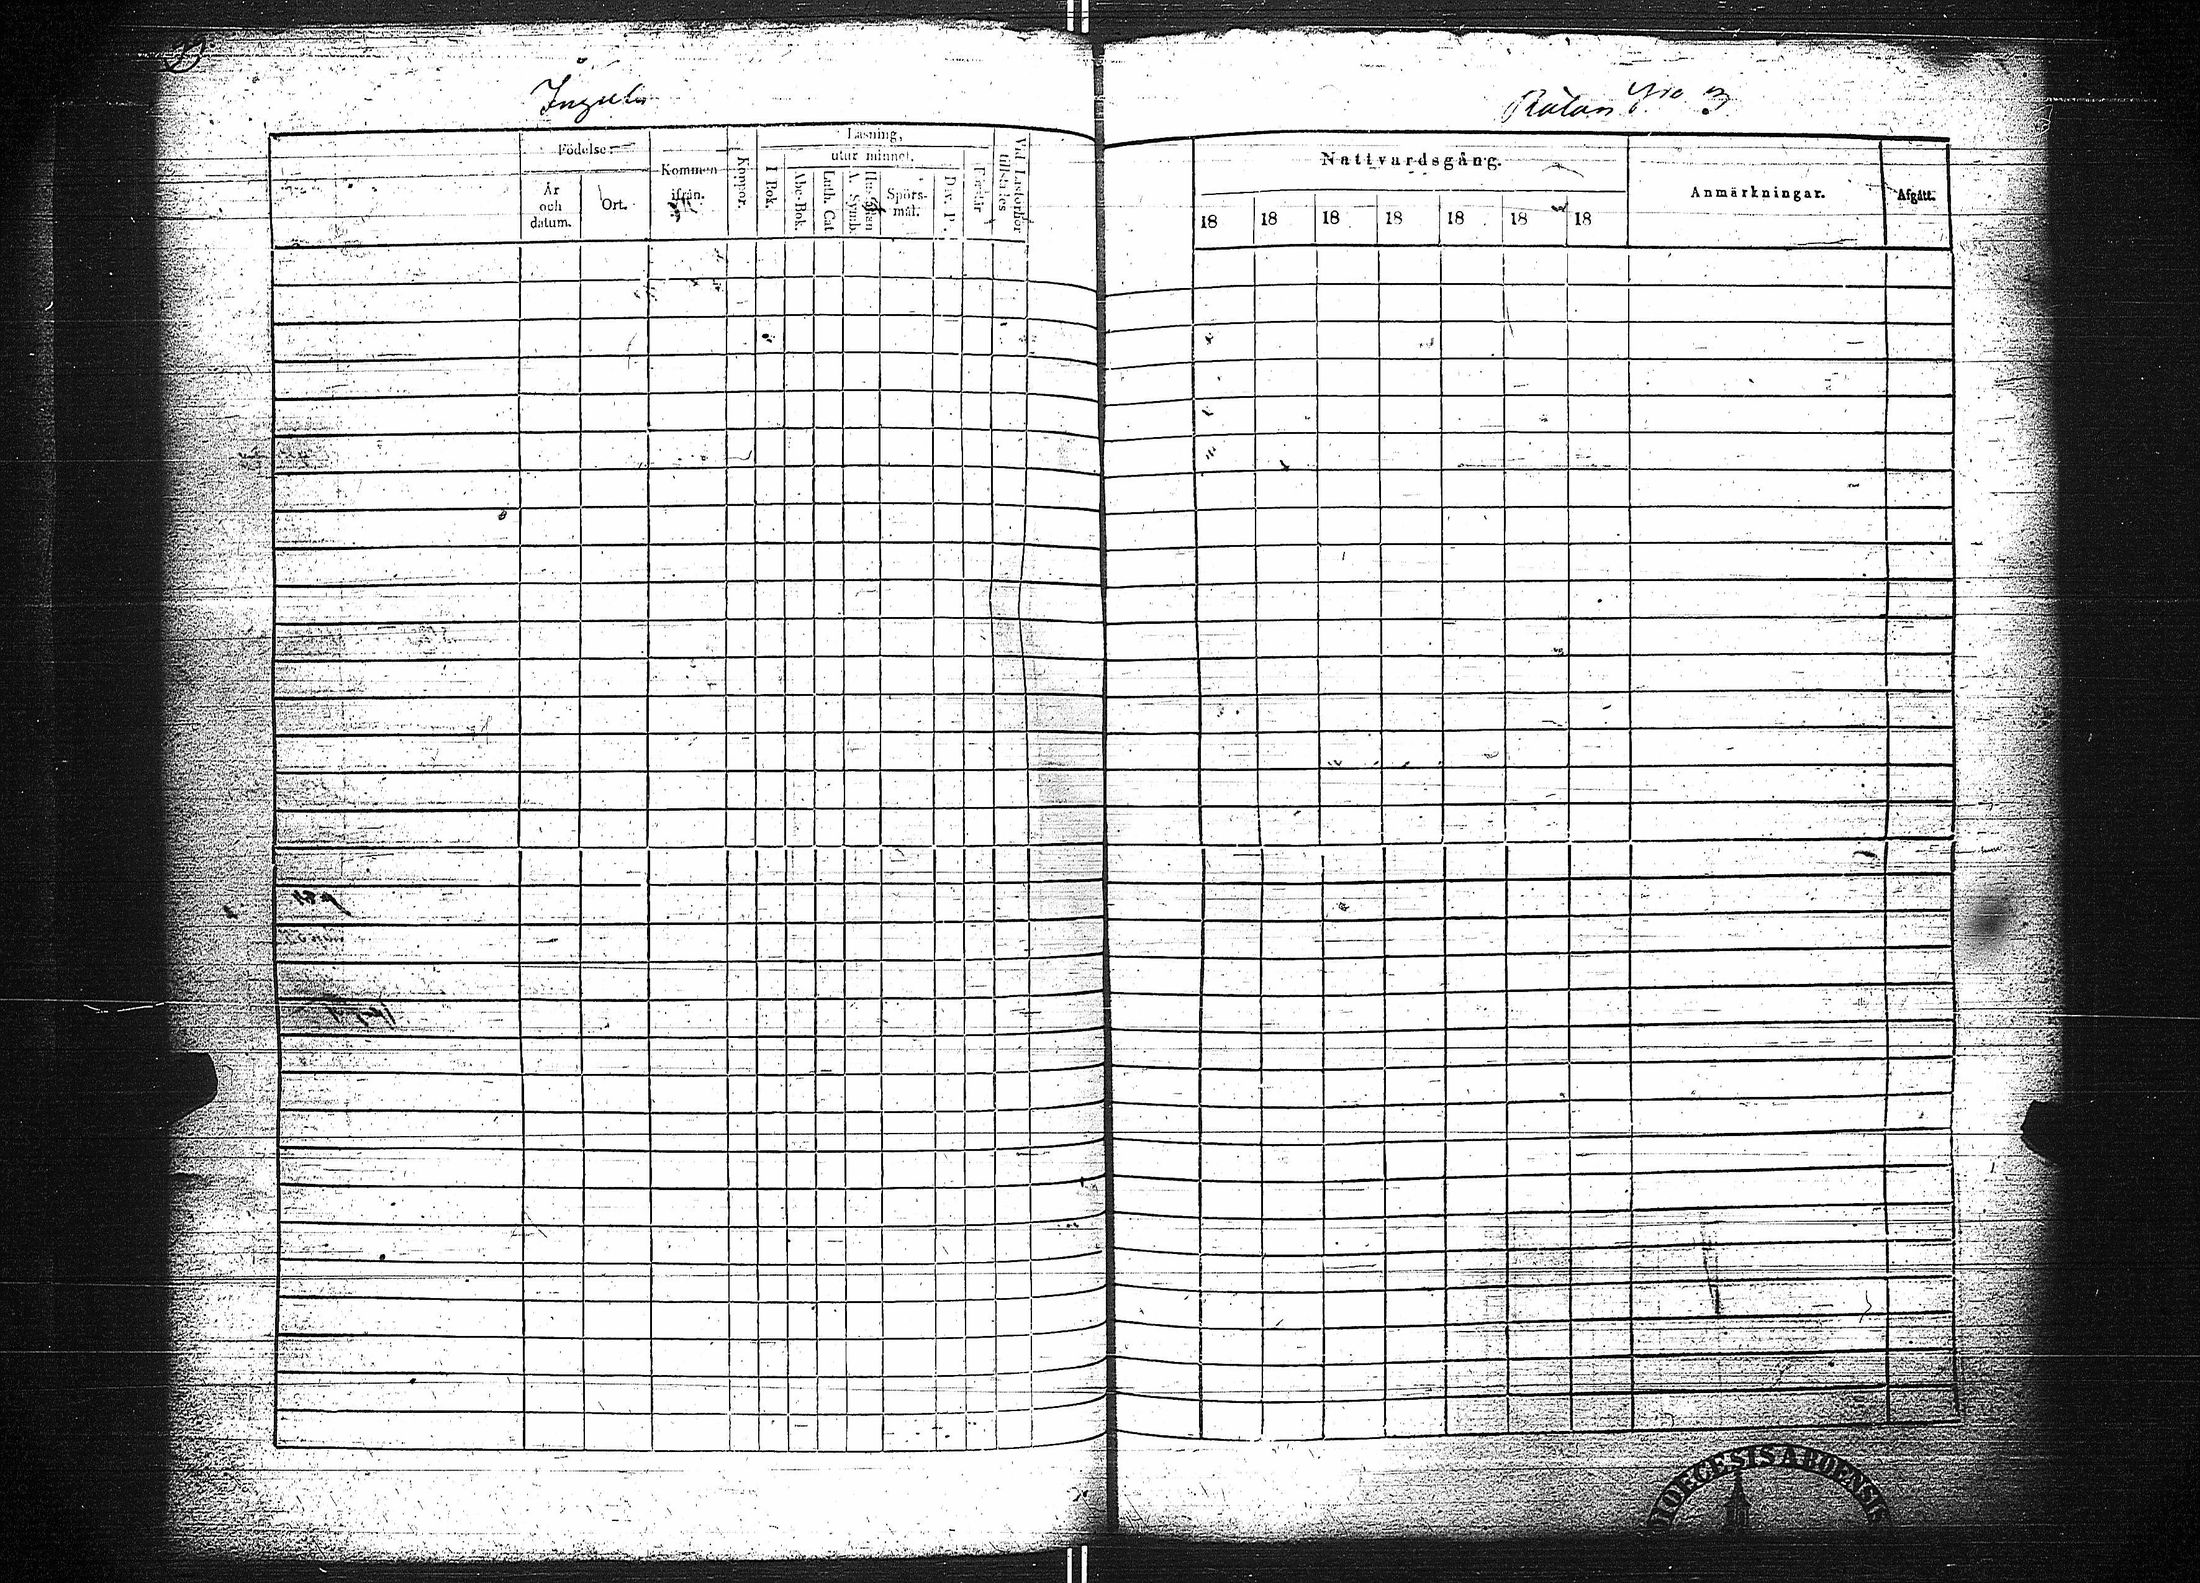 Råtan No 3
Födelse-
År
och
datum.
Ort.
Kommen
ifrån.
Koppor.
Läsning,
utur minnet.
I Bok.
Abc-Bok.
Luth. Cat
A. Symb.
Spörs-
mål.
Dav. P.
Förstår
Vid Läsförhör
tillstädes
Nattvardsgång.
18 18 18 18 18 18 18
Anmärkningar.
Afgått.
DIOECESIS ABOENSIS